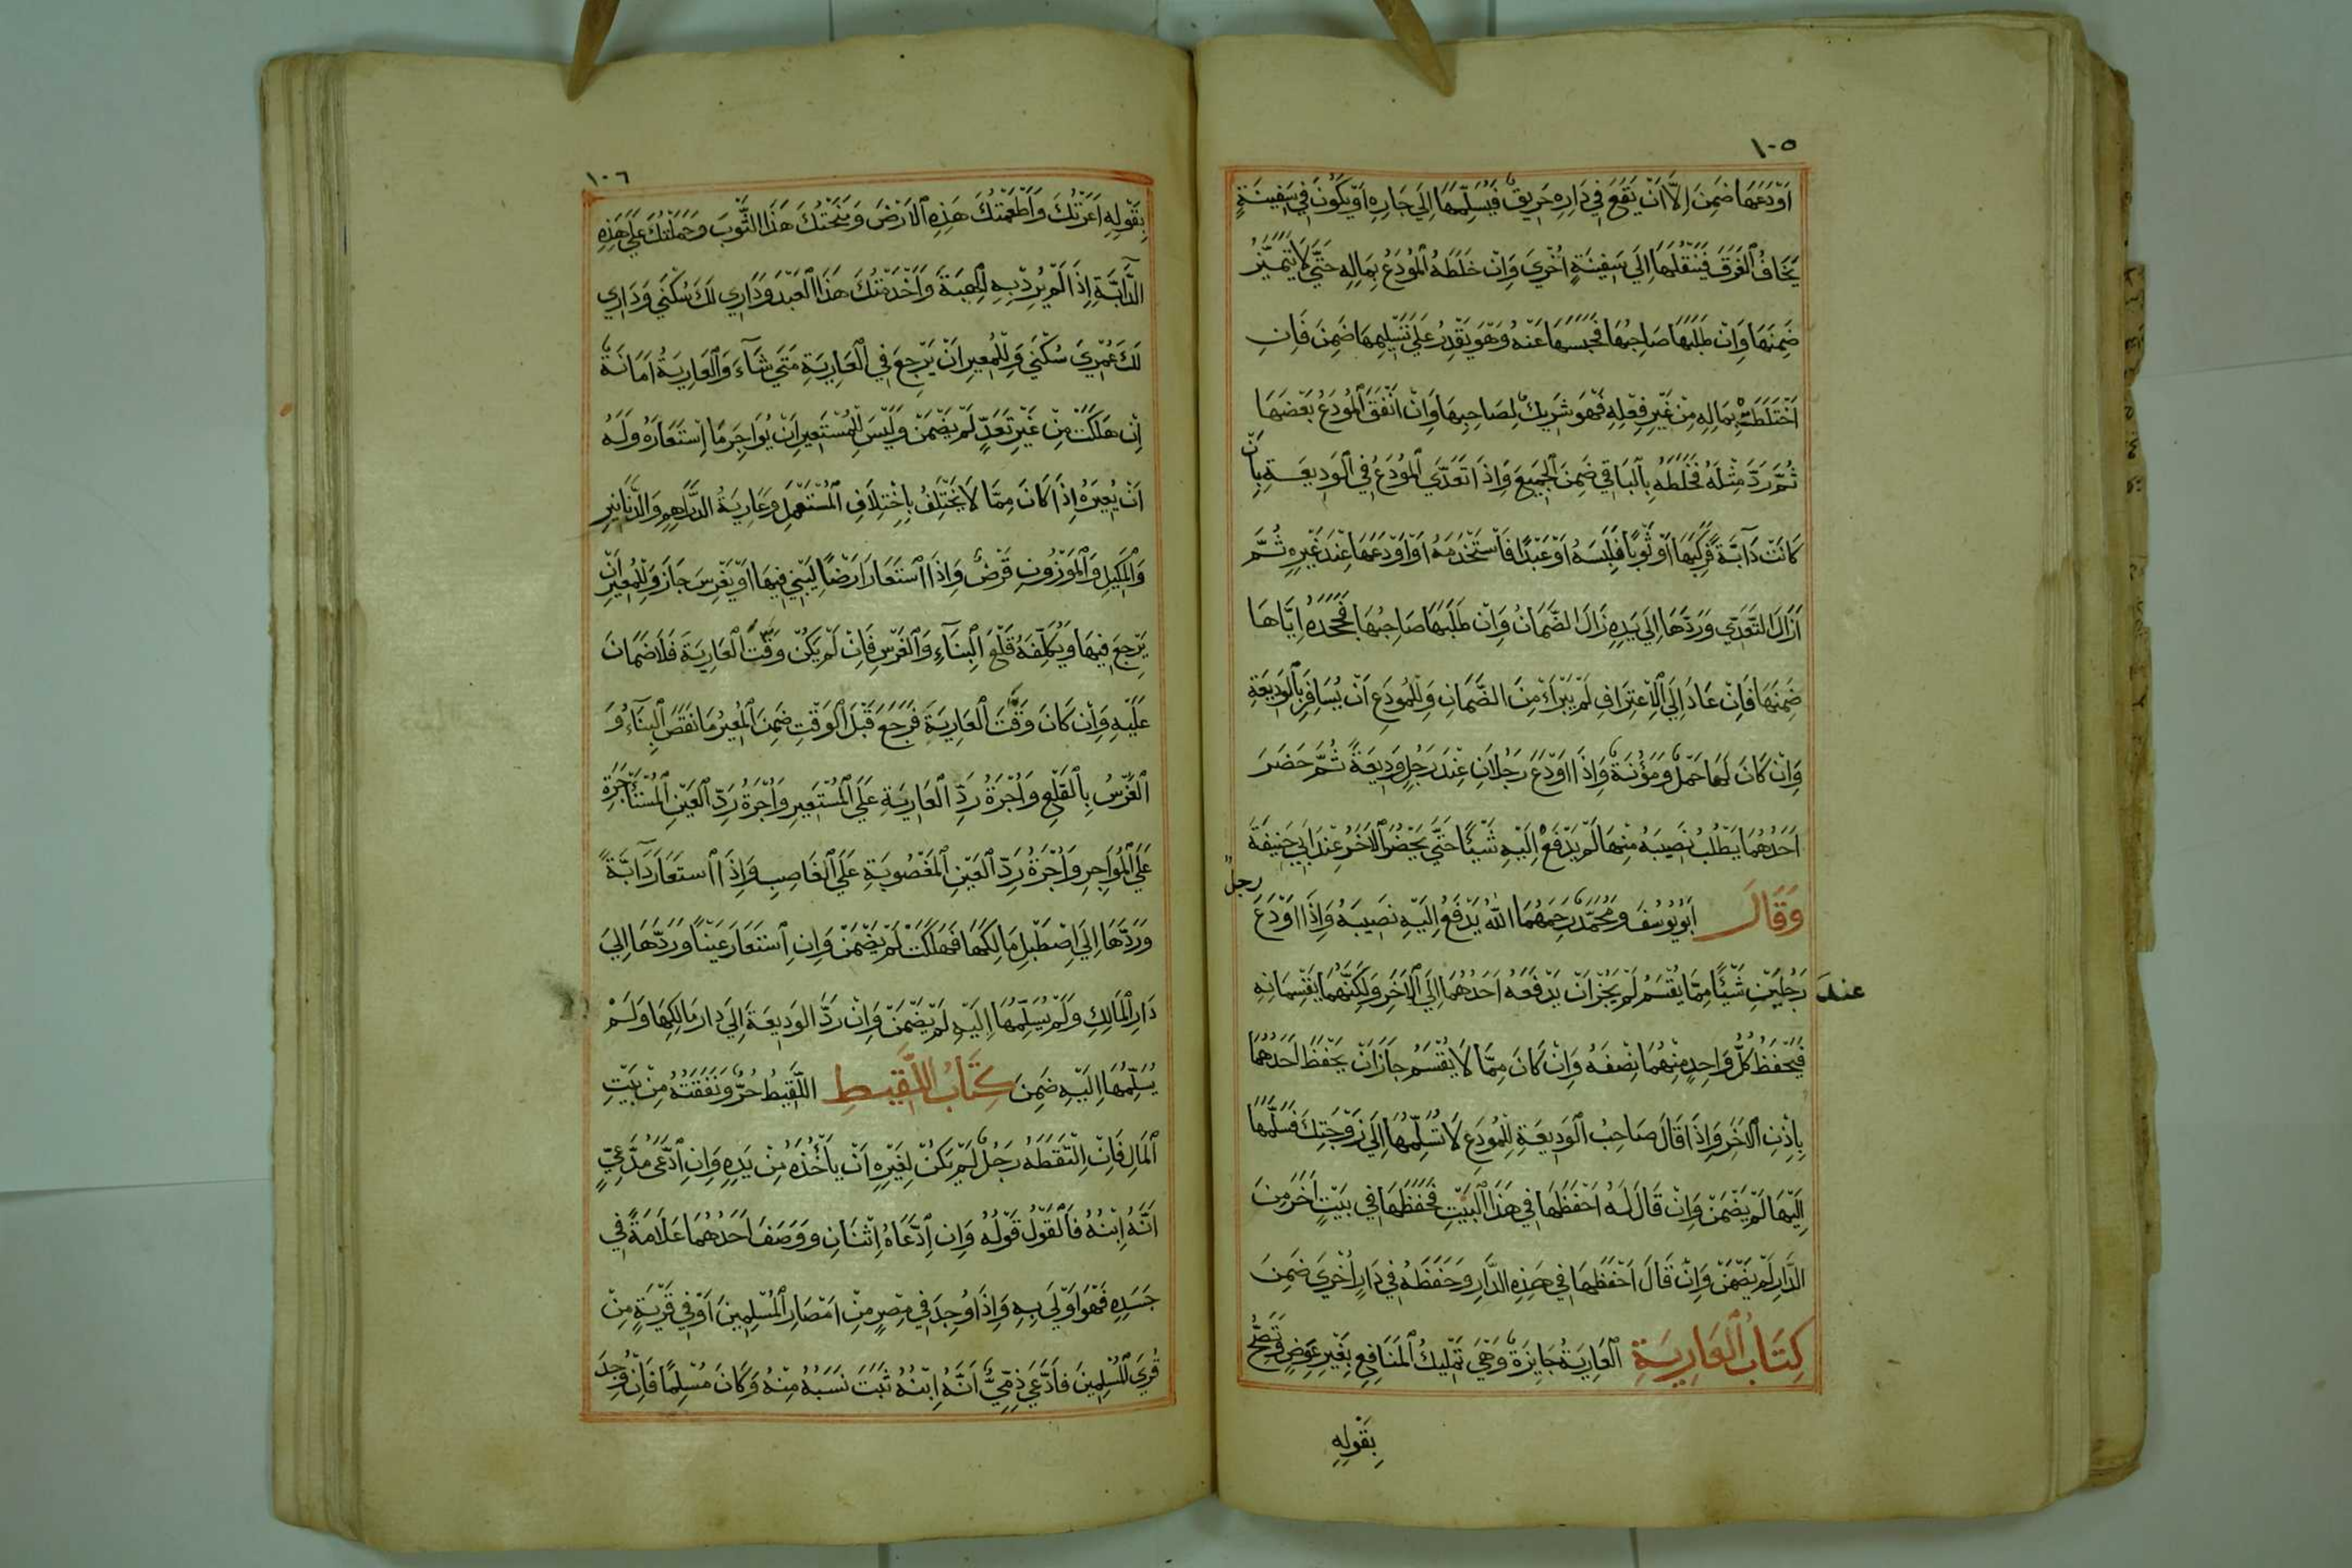 ١٠٥
اَوْدَعَهَا ضَمِنَ اِلَّا اَنْ يَقَعَ فِي دَارِهِ حَرِيقٌ فَيُسَلِّمَهَا اِلَي جَارِهِ اَوْ يَكُونَ فِي سَفِينَةٍ
يَخَافُ الْغَرَقَ فَيَنْقُلَهَا اِلَي سَفِينَةٍ اُخْرَي وَاِنْ خَلَطَهُ الْمُودَعُ بِمَالِهِ حَتَّي لَا يَتَمَيَّزُ
ضَمِنَهَا وَاِنْ طَلَبَهَا صَاحِبُهَا فَحَبَسَهَا عَنْهُ وَهْوَ يَقْدِرُ عَلَي تَسْلِيمِهَا ضَمِنَ فَاِنِ
اخْتَلَطَتْ بِمَالِهِ مِنْ غَيْرِ فِعْلِهِ فَهْوَ شَرِيكٌ لِصَاحِبِهَا وَاِنْ اَنْفَقَ الْمُودَعُ بَعْضَهَا
ثُمَّ رَدَّ مِثْلَهُ فَخَلَطَهُ بِالْبَاقِي ضَمِنَ الْجَمِيعَ وَاِذَا تَعَدَّي الْمُودَعُ فِي الْوَدِيعَةِ بِاَنْ
كَانَتْ دَآبَّةً فَرَكِبَهَا اَوْ ثَوْبًا فَلَبِسَهُ اَوْ عَبْدًا فَاسْتَخْدَمَهُ اَوْ اَوْدَعَهَا عِنْدَ غَيْرِهِ ثُمَّ
اَزَالَ التَّعَدِّي وَرَدَّهَا اِلَي يَدِهِ زَالَ الضَّمَانُ وَاِنْ طَلَبَهَا صَاحِبُهَا فَجَحَدَهُ اِيَّاهَا
ضَمِنَهَا فَاِنْ عَادَ اِلَي الْاِعْتِرَافِ لَمْ يَبْرَاءْ مِنَ الضَّمَانِ وَلِلْمُودَعِ اَنْ يُسَافِرَ بِالْوَدِيعَةِ
وَاِنْ كَانَ لَهَا حَمْلٌ وَمَؤُنَةٌ وَاِذَا اَوْدَعَ رَجُلَانِ عِنْدَ رَجُلٍ وَدِيعَةً ثُمَّ حَضَرَ
اَحَدُهُمَا يَطْلُبُ نَصِيبَهُ مِنْهَا لَمْ يَدْفَعْ اِلَيْهِ شَيْئًا حَتَّي يَحْضُرَ الْاٰخَرُ عِنْدَ اَبِي حَنِيفَةَ
وَقَالَ اَبُو يُوسُفَ وَمُحَمَّدٌ رَحِمَهُمَا اللّٰهُ يَدْفَعُ اِلَيْهِ نَصِيبَهُ وَاِذَا اَوْدَعَ رجلٌ
عند رَجُلَيْنِ شَيْئًا مِمَّا يُقْسَمُ لَمْ يَجُزْ اَنْ يَدْفَعَهُ اَحَدُهُمَا اِلَي الْاٰخَرِ وَلَكِنَّهُمَا يَقْسِمَانِهِ
فَيَحْفَظُ كُلُّ وَاحِدٍ مِنْهُمَا نِصْفَهُ وَاِنْ كَانَ مِمَّا لَا يُقْسَمُ جَازَ اَنْ يَحْفَظَ اَحَدُهُمَا
بِاِذْنِ الْاٰخَرِ وَاِذَا قَالَ صَاحِبُ الْوَدِيعَةِ لِلْمُودَعِ لَا تُسَلِّمْهَا اِلَي زَوْجَتِكَ فَسَلَّمَهَا
اِلَيْهَا لَمْ يَضْمَنْ وَاِنْ قَالَ لَهُ احْفَظْهَا فِي هَذَا الْبَيْتِ فَحَفِظَهَا فِي بَيْتٍ اٰخَرَ مِنَ
الدَّارِ لَمْ يَضْمَنْ وَاِنْ قَالَ احْفَظْهَا فِي هَذِهِ الدَّارِ وَحَفِظَهُ فِي دَارٍ اُخْرَي ضَمِنَ
كِتَابُ الْعَارِيَةِ الْعَارِيَةُ جَايِزَةٌ وَهْيَ تَمْلِيكُ الْمَنَافِعِ بِغَيْرِ عِوَضٍ وَتَصِحُّ
بِقَوْلِهِ
١٠٦
بِقَوْلِهِ اَعَرْتُكَ وَاَطْعَمْتُكَ هَذِهِ الْاَرْضَ وَمَنَحْتُكَ هَذَا الثَّوْبَ وَحَمَلْتُكَ عَلَي هَذِهِ
الدَّآبَّةِ اِذَا لَمْ يُرِدْ بِهِ الْهِبَةَ وَاَخْدَمْتُكَ هَذَا الْعَبْدَ وَدَارِي لَكَ سُكْنَي وَدَارِي
لَكَ عُمْرَي سُكْنَي وَلِلْمُعِيرِ اَنْ يَرْجِعَ فِي الْعَارِيَةِ مَتَي شَآءَ وَالْعَارِيَةُ اَمَانَةٌ
اِنْ هَلَكَتْ مِنْ غَيْرِ تَعَدٍّ لَمْ يَضْمَنْ وَلَيْسَ لِلْمُسْتَعِيرِ اَنْ يُوَاجِرَ مَا اسْتَعَارَهُ وَلَهُ
اَنْ يُعِيرَهُ اِذَا كَانَ مِمَّا لَا يَخْتَلِفُ بِاخْتِلَافِ الْمُسْتَعْمِلِ وَعَارِيَةُ الدَّرَاهِمِ وَالدَّنَانِيرِ
وَالْمَكِيلِ وَالْمَوْزُونِ قَرْضٌ وَاِذَا اسْتَعَارَ اَرْضًا لِيَبْنِي فِيهَا اَوْ يَغْرِسَ جَازَ وَلِلْمُعِيرِ اَنْ
يَرْجِعَ فِيهَا وَيُكَلِّفَهُ قَلْعَ الْبِنَآءِ وَالْغَرْسِ فَاِنْ لَمْ يَكُنْ وَقَّتَ الْعَارِيَةَ فَلَا ضَمَانَ
عَلَيْهِ وَاِنْ كَانَ وَقَّتَ الْعَارِيَةَ فَرَجَعَ قَبْلَ الْوَقْتِ ضَمِنَ الْمُعِيرُ مَا نَقَصَ الْبِنَآءُ وَ
الْغَرْسُ بِالْقَلْعِ وَاُجْرَةُ رَدِّ الْعَارِيَةِ عَلَي الْمُسْتَعِيرِ وَاُجْرَةُ رَدِّ الْعَيْنِ الْمُسْتَأْجَرَةِ
عَلَي الْمُوَاجِرِ وَاُجْرَةُ رَدِّ الْعَيْنِ الْمَغْصُوبَةِ عَلَي الْغَاصِبِ وَاِذَا اسْتَعَارَ دَآبَّةً
وَرَدَّهَا اِلَي اِصْطَبْلِ مَالِكِهَا فَهَلَكَتْ لَمْ يَضْمَنْ وَاِنِ اسْتَعَارَ عَيْنًا وَرَدَّهَا اِلَي
دَارِ الْمَالِكِ وَلَمْ يُسَلِّمْهَا اِلَيْهِ لَمْ يَضْمَنْ وَاِنْ رَدَّ الْوَدِيعَةَ اِلَي دَارِ مَالِكِهَا وَلَمْ
يُسَلِّمْهَا اِلَيْهِ ضَمِنَ كِتَابُ اللَّقِيطِ اللَّقِيطُ حُرٌّ وَنَفَقَتُهُ مِنْ بَيْتِ
الْمَالِ فَاِنْ الْتَقَطَهُ رَجُلٌ لَمْ يَكُنْ لِغَيْرِهِ اَنْ يَأْخُذَهُ مِنْ يَدِهِ وَاِنِ ادَّعَى مُدَّعٍ
اَنَّهُ ابْنُهُ فَالْقَوْلُ قَوْلُهُ وَاِنِ ادَّعَاهُ اثْنَانِ وَوَصَفَ اَحَدُهُمَا عَلَامَةً فِي
جَسَدِهِ فَهْوَ اَوْلَي بِهِ وَاِذَا وُجِدَ فِي مِصْرٍ مِنْ اَمْصَارِ الْمُسْلِمِينَ اَوْ فِي قَرْيَةٍ مِنْ
قُرَي الْمُسْلِمِينَ فَادَّعَي ذِمِّيٌّ اَنَّهُ ابْنُهُ ثَبَتَ نَسَبُهُ مِنْهُ وَكَانَ مُسْلِمًا فَاِنْ وُجِدَ